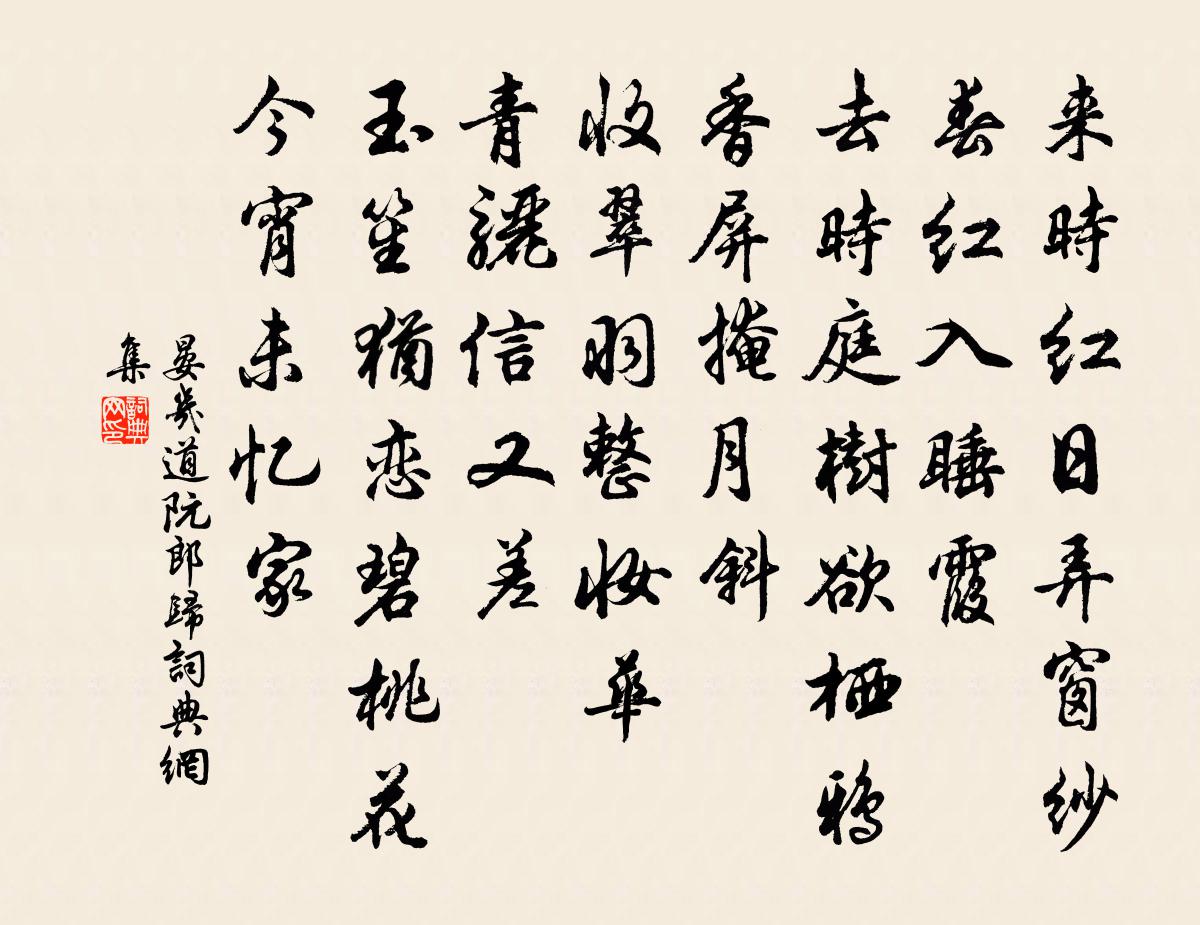 来時红日弄窗纱
春红入睡霞
去時庭樹欲栖鸦
香屏掩月斜
收翠羽整妆華
青骊信又差
玉笙猶恋碧桃花
今宵未忆家
晏幾道阮郎歸詞典網
集
詞典网印